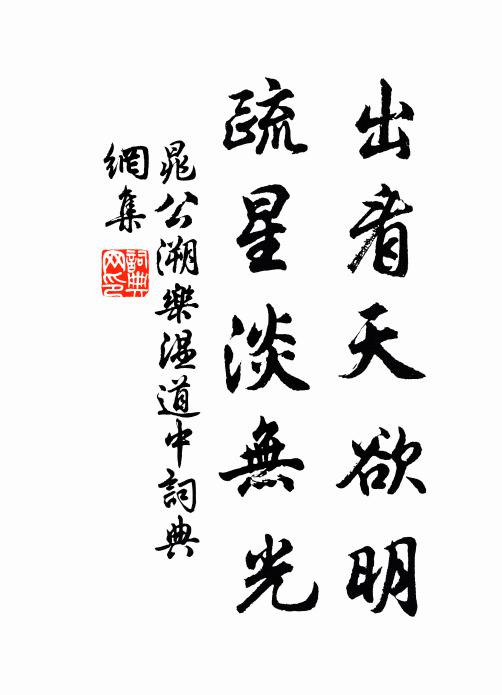 出看天欲明
疏星淡無光
晁公溯樂温道中詞典
網集
詞典網印